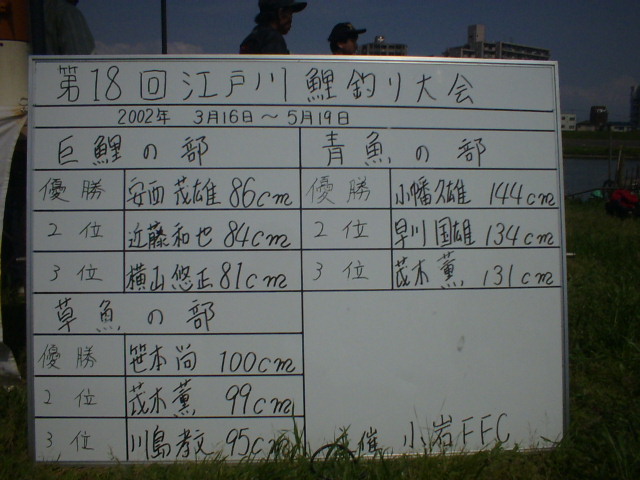 第18回江戸川鯉釣り大会
2002年 3月16日～5月19日
巨鯉の部
優勝 安西茂雄 86cm
2位 近藤和也 84cm
3位 横山悠正 81cm
青魚の部
優勝 小幡久雄 144cm
2位 早川国雄 134cm
3位 茂木薫 131cm
草魚の部
優勝 笹本尚 100cm
2位 茂木薫 99cm
3位 川島孝文 95cm
催 小岩FFC